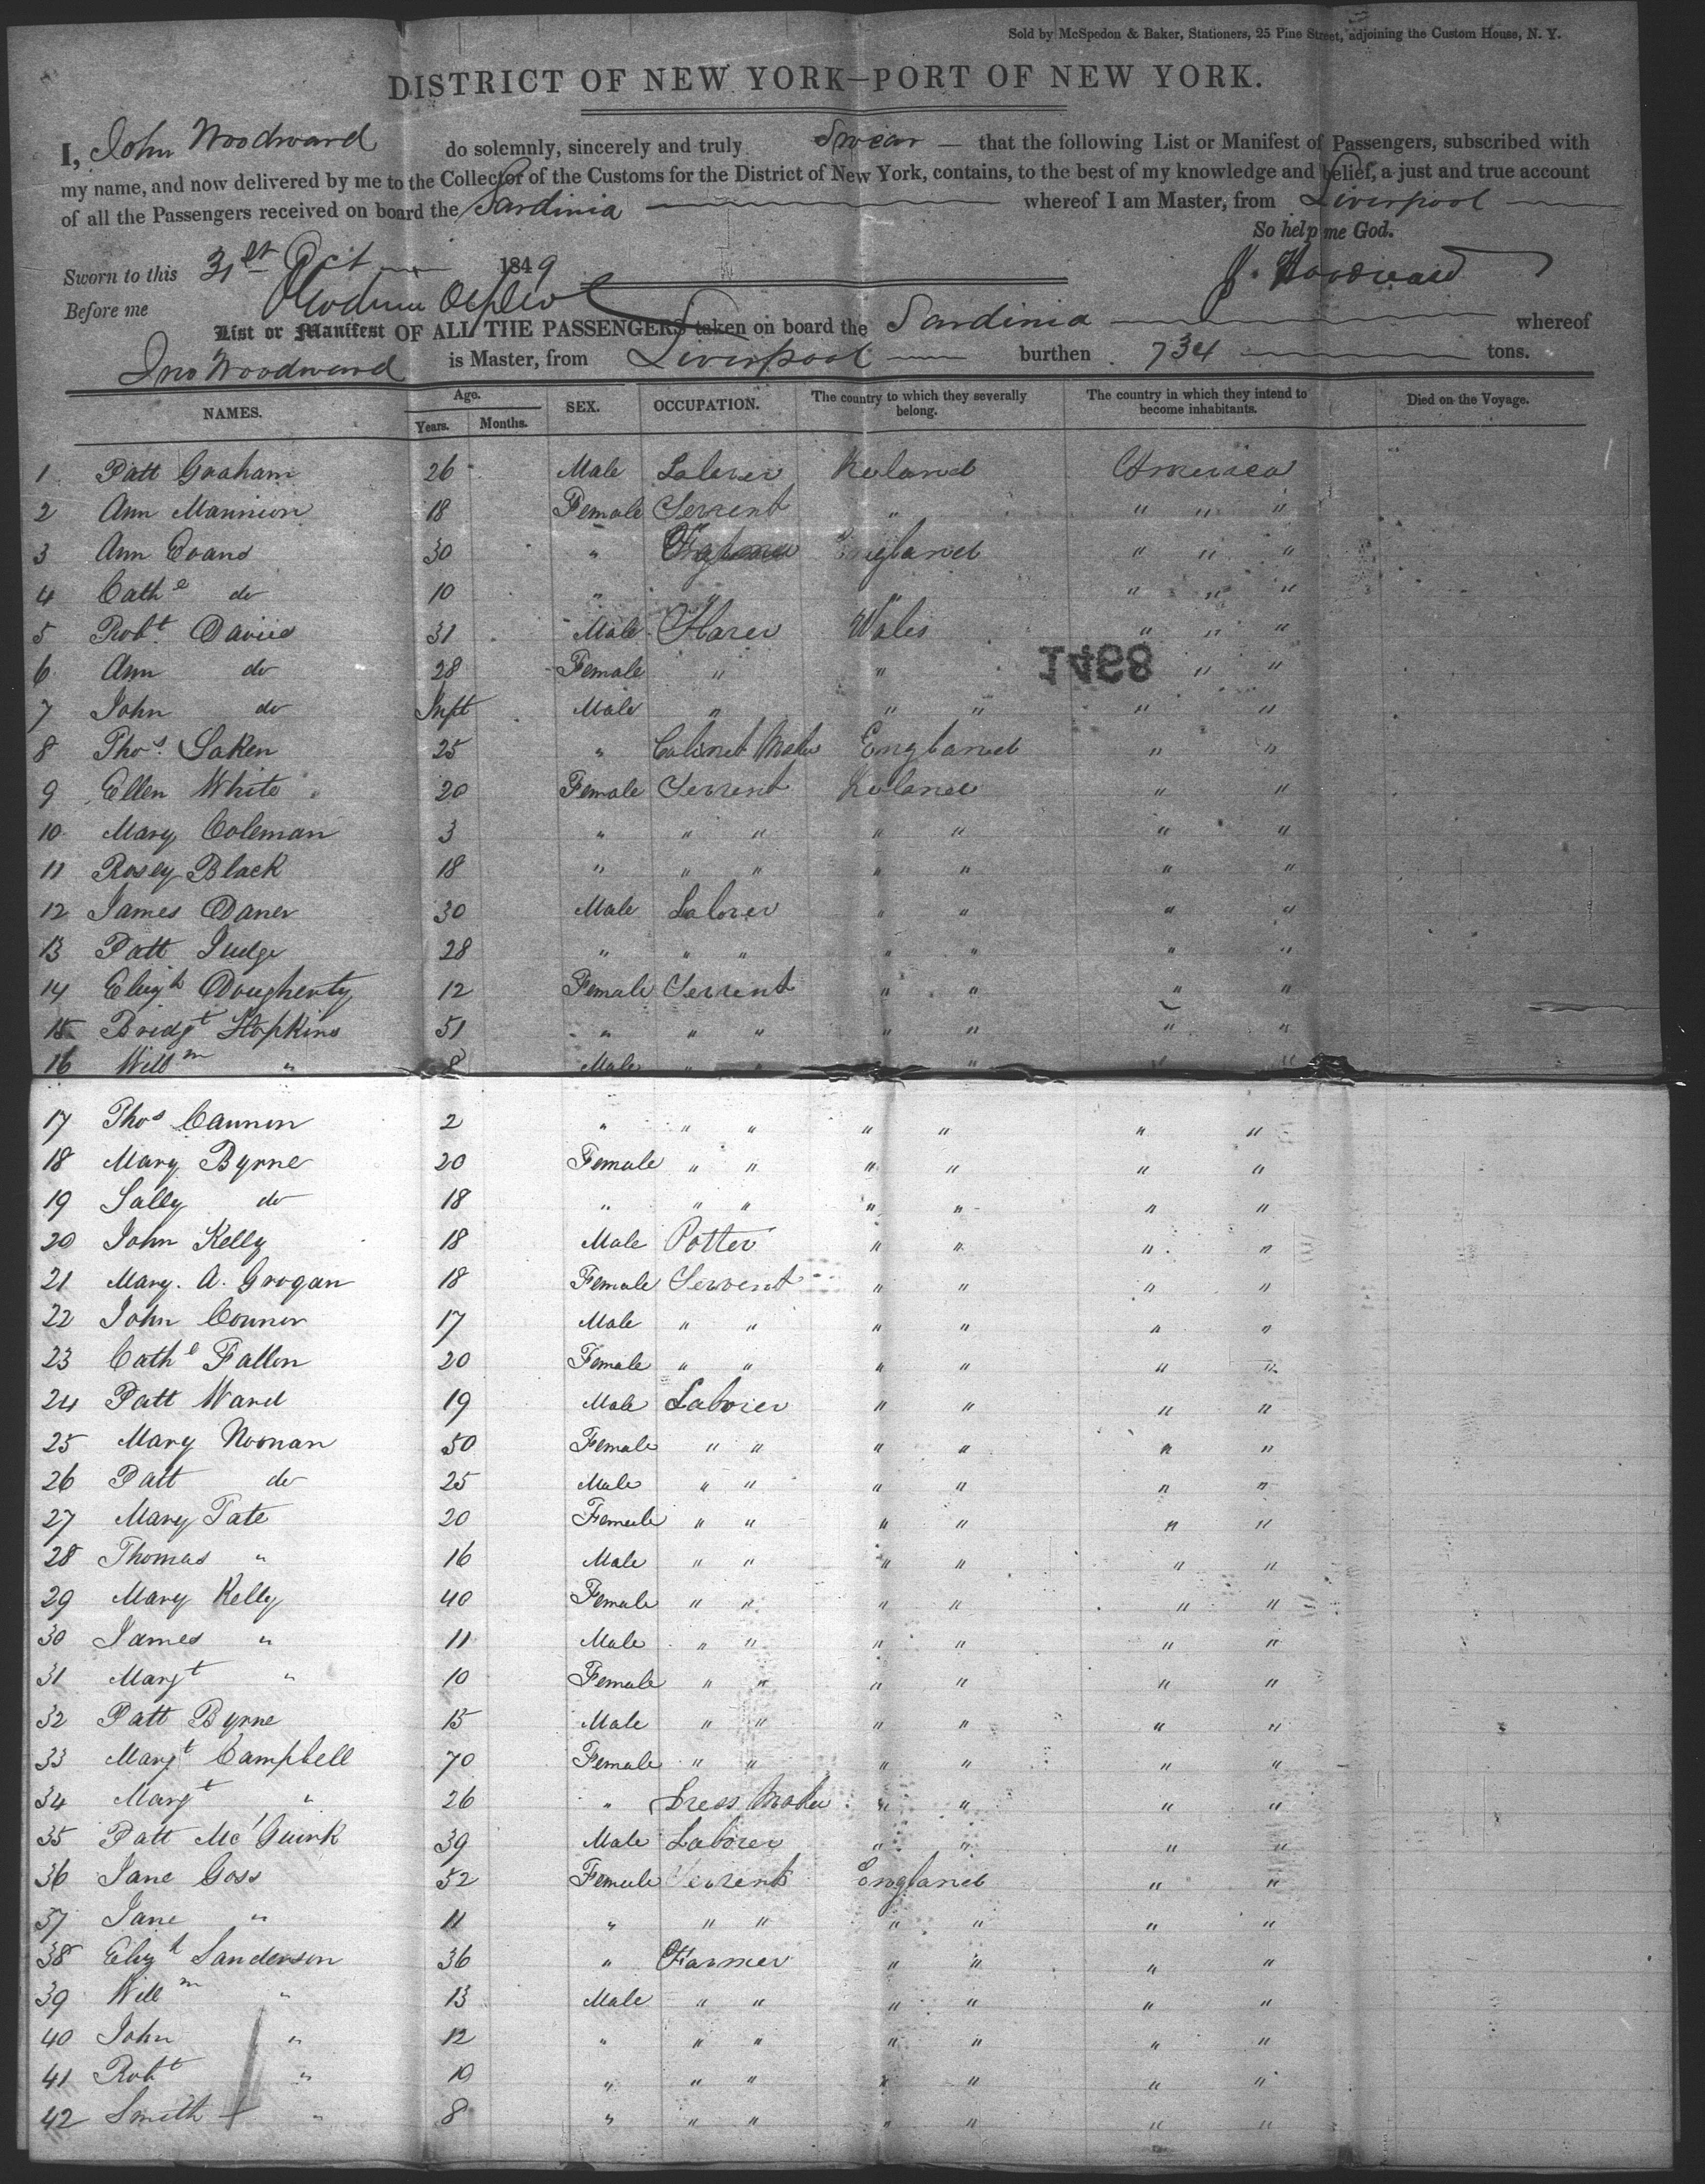 Sold by McSpedon & Baker, Stationers, 25 Pine Street, adjoining the Custom House, N. Y.
DISTRICT OF NEW YORK—PORT OF NEW YORK.
I, John Woodward do solemnly, sincerely and truly Swear — that the following List or Manifest of Passengers, subscribed with
my name, and now delivered by me to the Collector of the Customs for the District of New York, contains, to the best of my knowledge and belief, a just and true account
of all the Passengers received on board the Sardinia whereof I am Master, from Liverpool
So help me God.
Sworn to this 31st Oct 1849 J. Woodward
Before me
List or Manifest OF ALL THE PASSENGERS taken on board the Sardinia whereof
Jno Woodward is Master, from Liverpool burthen 734 tons.
NAMES. Age. Years. Months. SEX. OCCUPATION. The country to which they severally belong. The country in which they intend to become inhabitants. Died on the Voyage.
1 Patt Graham 26 Male Laborer Ireland America
2 Ann Mannion 18 Female Servent " " " "
3 Ann Evans 30 " England " " "
4 Cathe do 10 " " " " "
5 Robt Davies 31 Male Wales " " "
6 Ann do 28 Female " " " "
7 John do Inft Male " " " " "
8 Thos. Saken 25 " Cabinet Maker England " "
9 Ellen White 20 Female Servent Ireland " "
10 Mary Coleman 3 " " " " " " "
11 Rosey Black 18 " " " " " " "
12 James Daner 30 Male Laborer " " " "
13 Patt Judge 28 " " " " " " "
14 Elizth Dougherty 12 Female Servent " " " "
15 Bridgt Hopkins 51 " " " " " " "
16 Willm " 8 Male " " " " "
17 Thos Cannon 2 " " " " " " "
18 Mary Byrne 20 Female " " " " " "
19 Sally do 18 " " " " " " "
20 John Kelly 18 Male Potter " " " "
21 Mary. A. Grogan 18 Female Servent " " " "
22 John Connor 17 Male " " " " " "
23 Cathe Fallon 20 Female " " " " " "
24 Patt Ward 19 Male Laborer " " " "
25 Mary Noonan 50 Female " " " " " "
26 Patt do 25 Male " " " " " "
27 Mary Tate 20 Female " " " " " "
28 Thomas " 16 Male " " " " " "
29 Mary Kelly 40 Female " " " " " "
30 James " 11 Male " " " " " "
31 Margt " 10 Female " " " " " "
32 Patt Byrne 15 Male " " " " " "
33 Margt Campbell 70 Female " " " " " "
34 Margt " 26 " Dress Maker " " " "
35 Patt Mc'Guirk 39 Male Laborer " " " "
36 Jane Goss 32 Female Servents England " "
37 Jane " 11 " " " " " " "
38 Elizth Sanderson 36 " Farmer " " " "
39 Willm " 13 Male " " " " " "
40 John " 12 " " " " " " "
41 Robt " 10 " " " " " " "
42 Smith " 8 " " " " " " "
1468